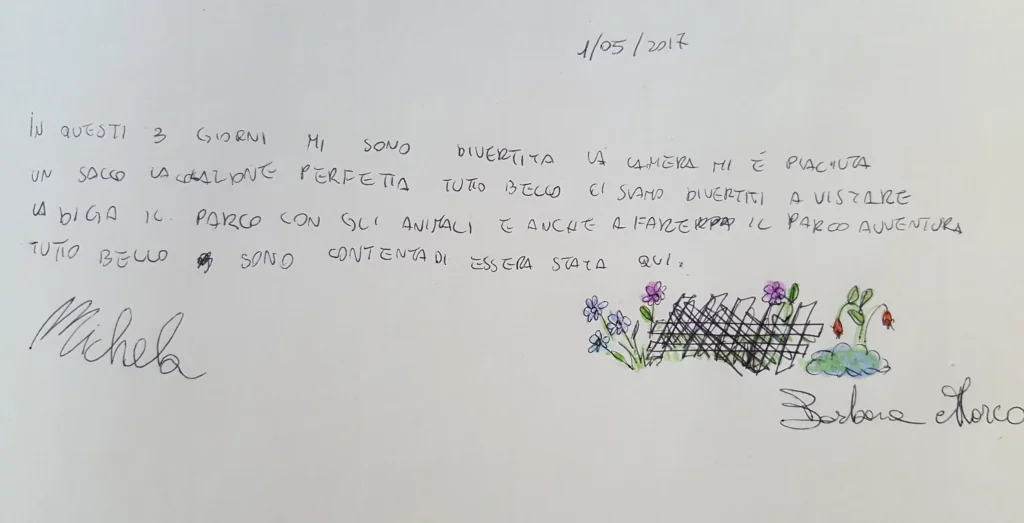 1/05/2017
IN QUESTI 3 GIORNI MI SONO DIVERTITA LA CAMERA MI È PIACIUTA
UN SACCO LA COLAZIONE PERFETTA TUTTO BELLO CI SIAMO DIVERTITI A VISTARE
LA DIGA IL PARCO CON GLI ANIMALI E ANCHE A FARE IL PARCO AVVENTURA
TUTTO BELLO SONO CONTENTA DI ESSERA STATA QUI.
Michela
Barbara e Marco